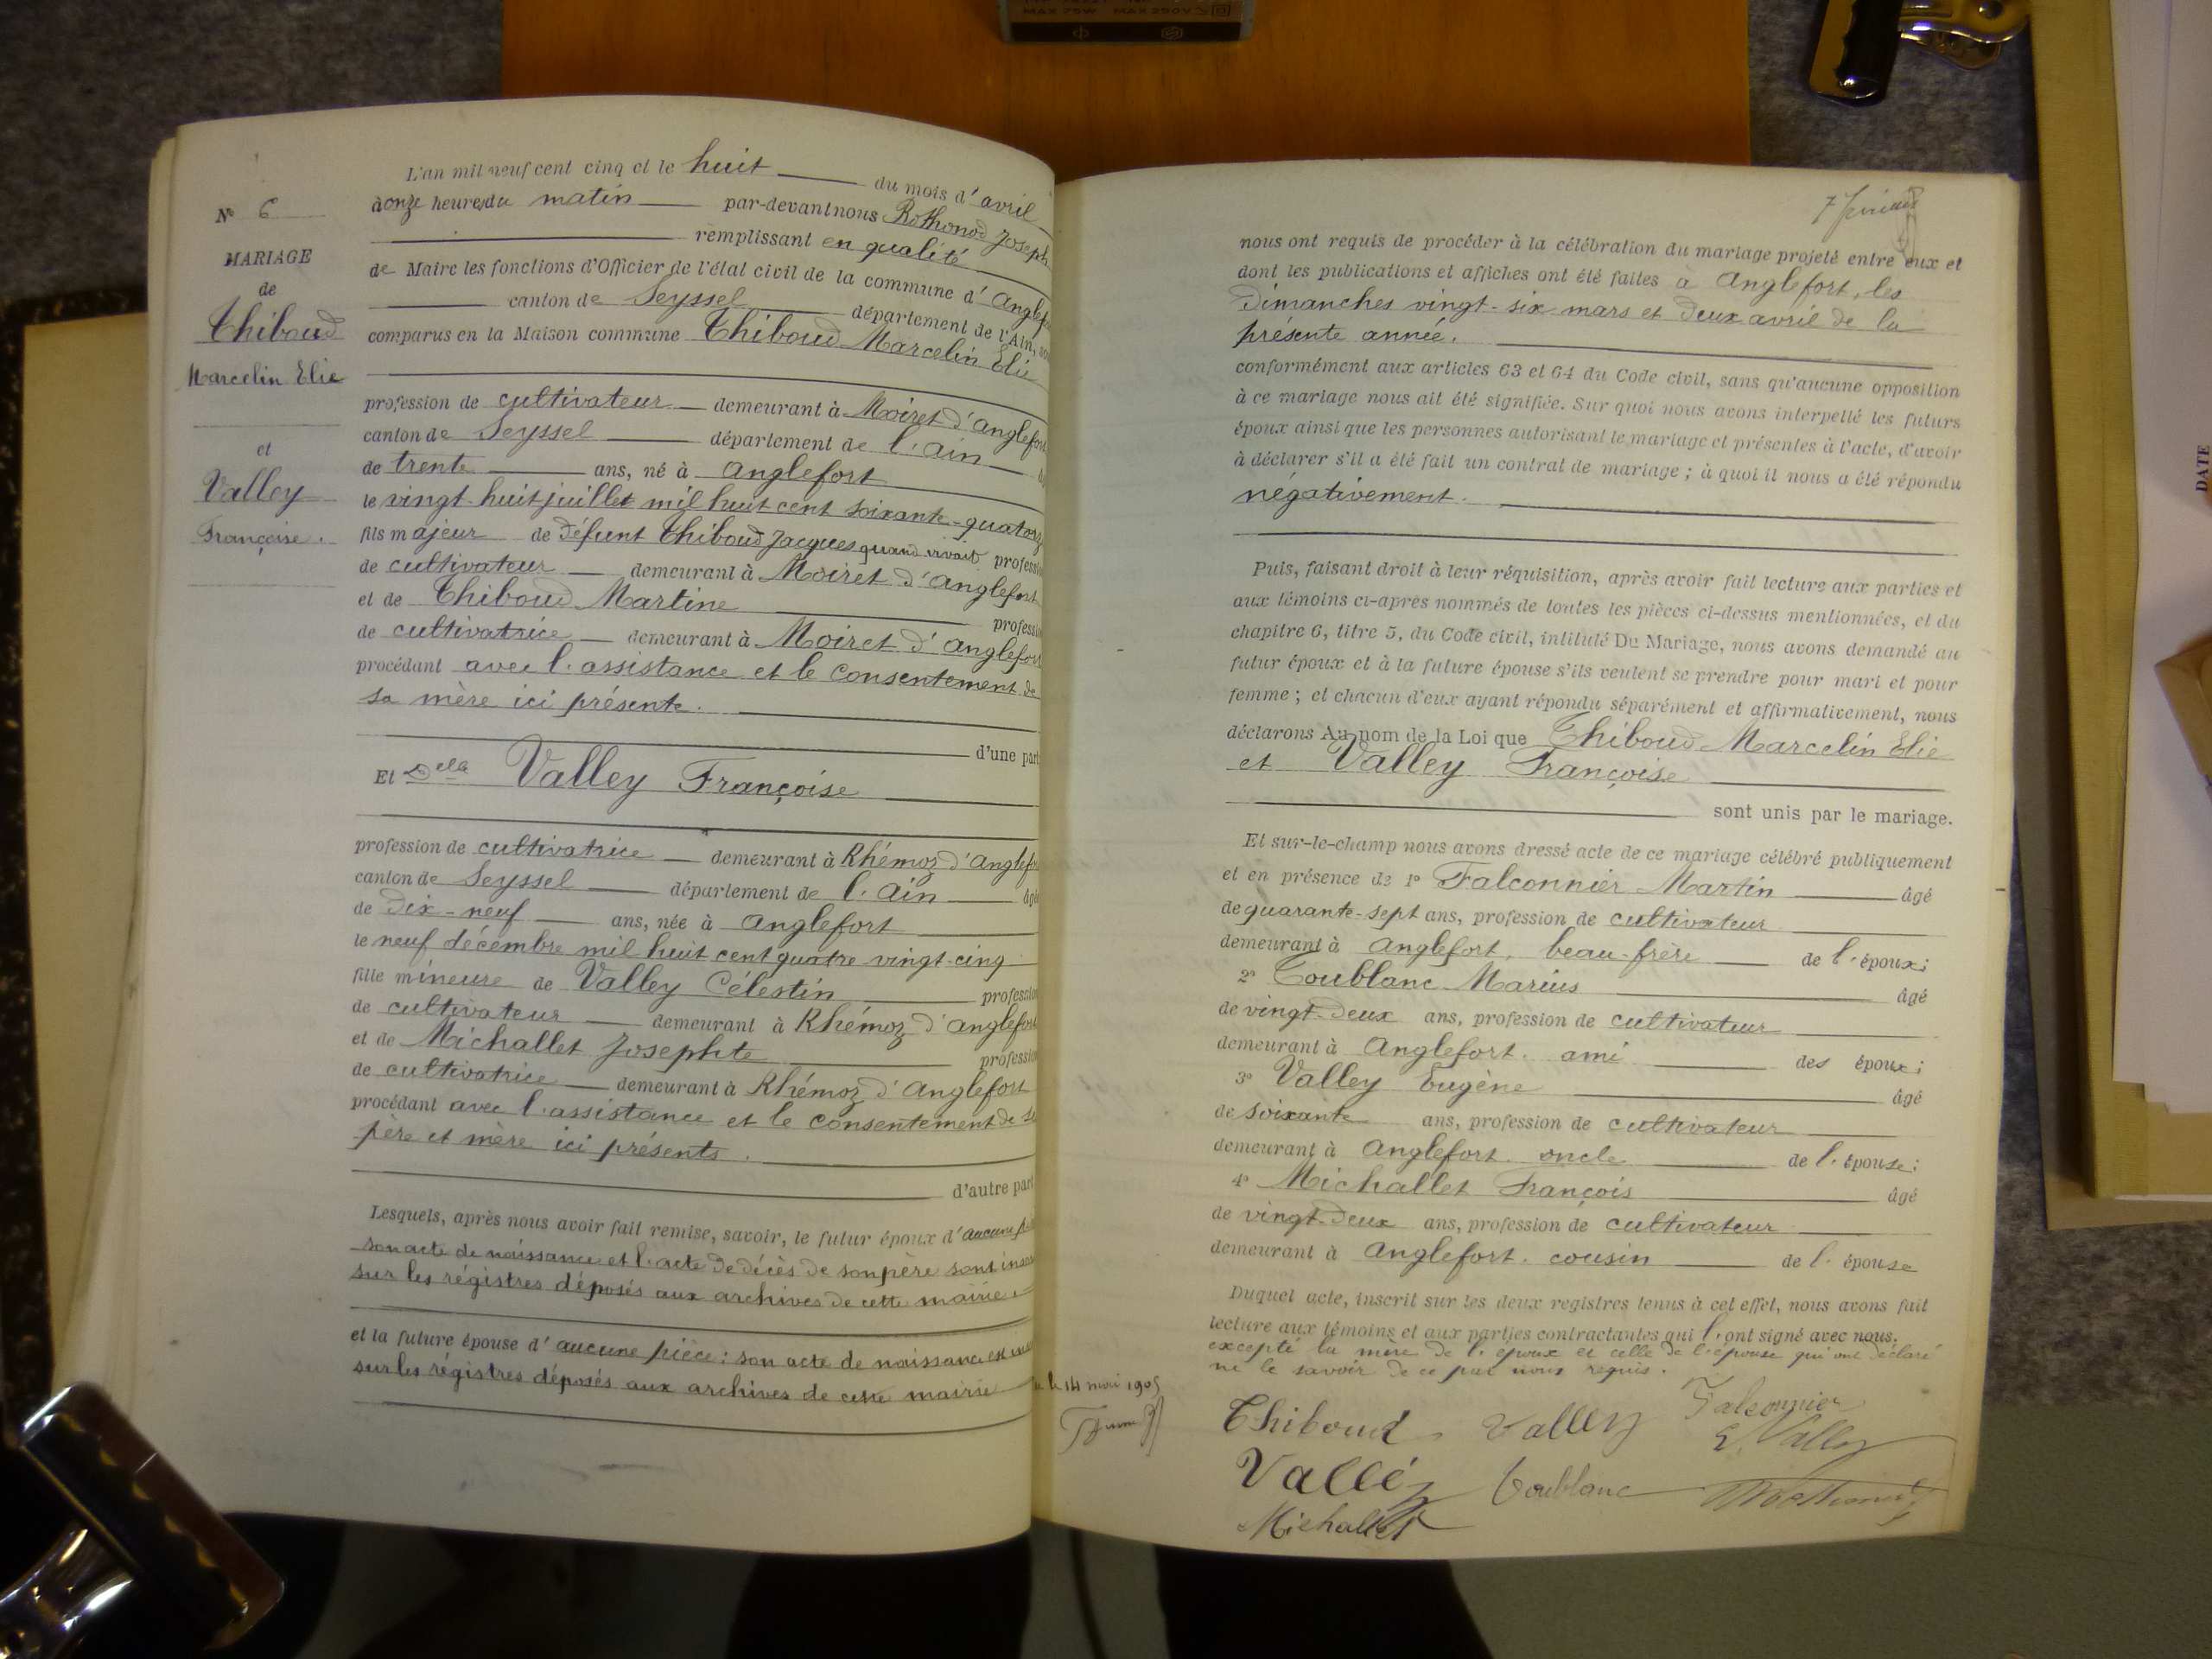 MAX 75W MAX 250V
N° 6
MARIAGE
de
Thiboud
Marcelin Elie
et
Valley
Françoise.
L'an mil neuf cent cinq et le huit du mois d'avril
à onze heures du matin par-devant nous Rothonod Joseph
remplissant en qualité
de Maire les fonctions d'Officier de l'état civil de la commune d'Anglef
canton de Seyssel département de l'Ain,
comparus en la Maison commune Thiboud Marcelin Elie
profession de cultivateur demeurant à Moiret d'Anglefort
canton de Seyssel département de l'Ain
de trente ans, né à Anglefort
le vingt-huit juillet mil huit cent soixante-quatorz
fils majeur de défunt Thiboud Jacques quand vivait professi
de cultivateur demeurant à Moiret d'Anglefort
et de Thiboud Martine professi
de cultivatrice demeurant à Moiret d'Anglefort
procédant avec l'assistance et le consentement de
sa mère ici présente.
d'une part
Et Delle Valley Françoise
profession de cultivatrice demeurant à Rhémoz d'Anglefo
canton de Seyssel département de l'Ain âgé
de dix-neuf ans, née à Anglefort
le neuf décembre mil huit cent quatre vingt-cinq
fille mineure de Valley Célestin profession
de cultivateur demeurant à Rhémoz d'Anglefort
et de Michallet Josephte profession
de cultivatrice demeurant à Rhémoz d'Anglefort
procédant avec l'assistance et le consentement de se
père et mère ici présents.
d'autre part
Lesquels, après nous avoir fait remise, savoir, le futur époux d'aucune
son acte de naissance et l'acte de décès de son père sont
sur les régistres déposés aux archives de cette mairie.
et la future épouse d'aucune pièce: son acte de naissance est
sur les régistres déposés aux archives de cette mairie
le 14 mai 1905
nous ont requis de procéder à la célébration du mariage projeté entre eux et
dont les publications et affiches ont été faites à Anglefort, les
dimanches vingt-six mars et deux avril de la
présente année.
conformément aux articles 63 et 64 du Code civil, sans qu'aucune opposition
à ce mariage nous ait été signifiée. Sur quoi nous avons interpellé les futurs
époux ainsi que les personnes autorisant le mariage et présentes à l'acte, d'avoir
à déclarer s'il a été fait un contrat de mariage; à quoi il nous a été répondu
négativement.
Puis, faisant droit à leur réquisition, après avoir fait lecture aux parties et
aux témoins ci-après nommés de toutes les pièces ci-dessus mentionnées, et du
chapitre 6, titre 5, du Code civil, intitulé Du Mariage, nous avons demandé au
futur époux et à la future épouse s'ils veulent se prendre pour mari et pour
femme; et chacun d'eux ayant répondu séparément et affirmativement, nous
déclarons Au nom de la Loi que Thiboud Marcelin Elie
et Valley Françoise
sont unis par le mariage.
Et sur-le-champ nous avons dressé acte de ce mariage célébré publiquement
et en présence de 1° Falconnier Martin âgé
de quarante-sept ans, profession de cultivateur
demeurant à Anglefort, beau-frère de l'époux;
2° Toublanc Marius âgé
de vingt-deux ans, profession de cultivateur
demeurant à Anglefort. ami des époux;
3° Valley Eugène âgé
de soixante ans, profession de cultivateur
demeurant à Anglefort. oncle de l'épouse;
4° Michallet François âgé
de vingt-deux ans, profession de cultivateur
demeurant à Anglefort. cousin de l'épouse
Duquel acte, inscrit sur les deux registres tenus à cet effet, nous avons fait
lecture aux témoins et aux parties contractantes qui l'ont signé avec nous.
excepté la mère de l'époux et celle de l'épouse qui ont déclaré
ne le savoir de ce par nous requis.
Thiboud Valley Falconnier
E. Valley
Valléy Toublanc
Michallet
DATE